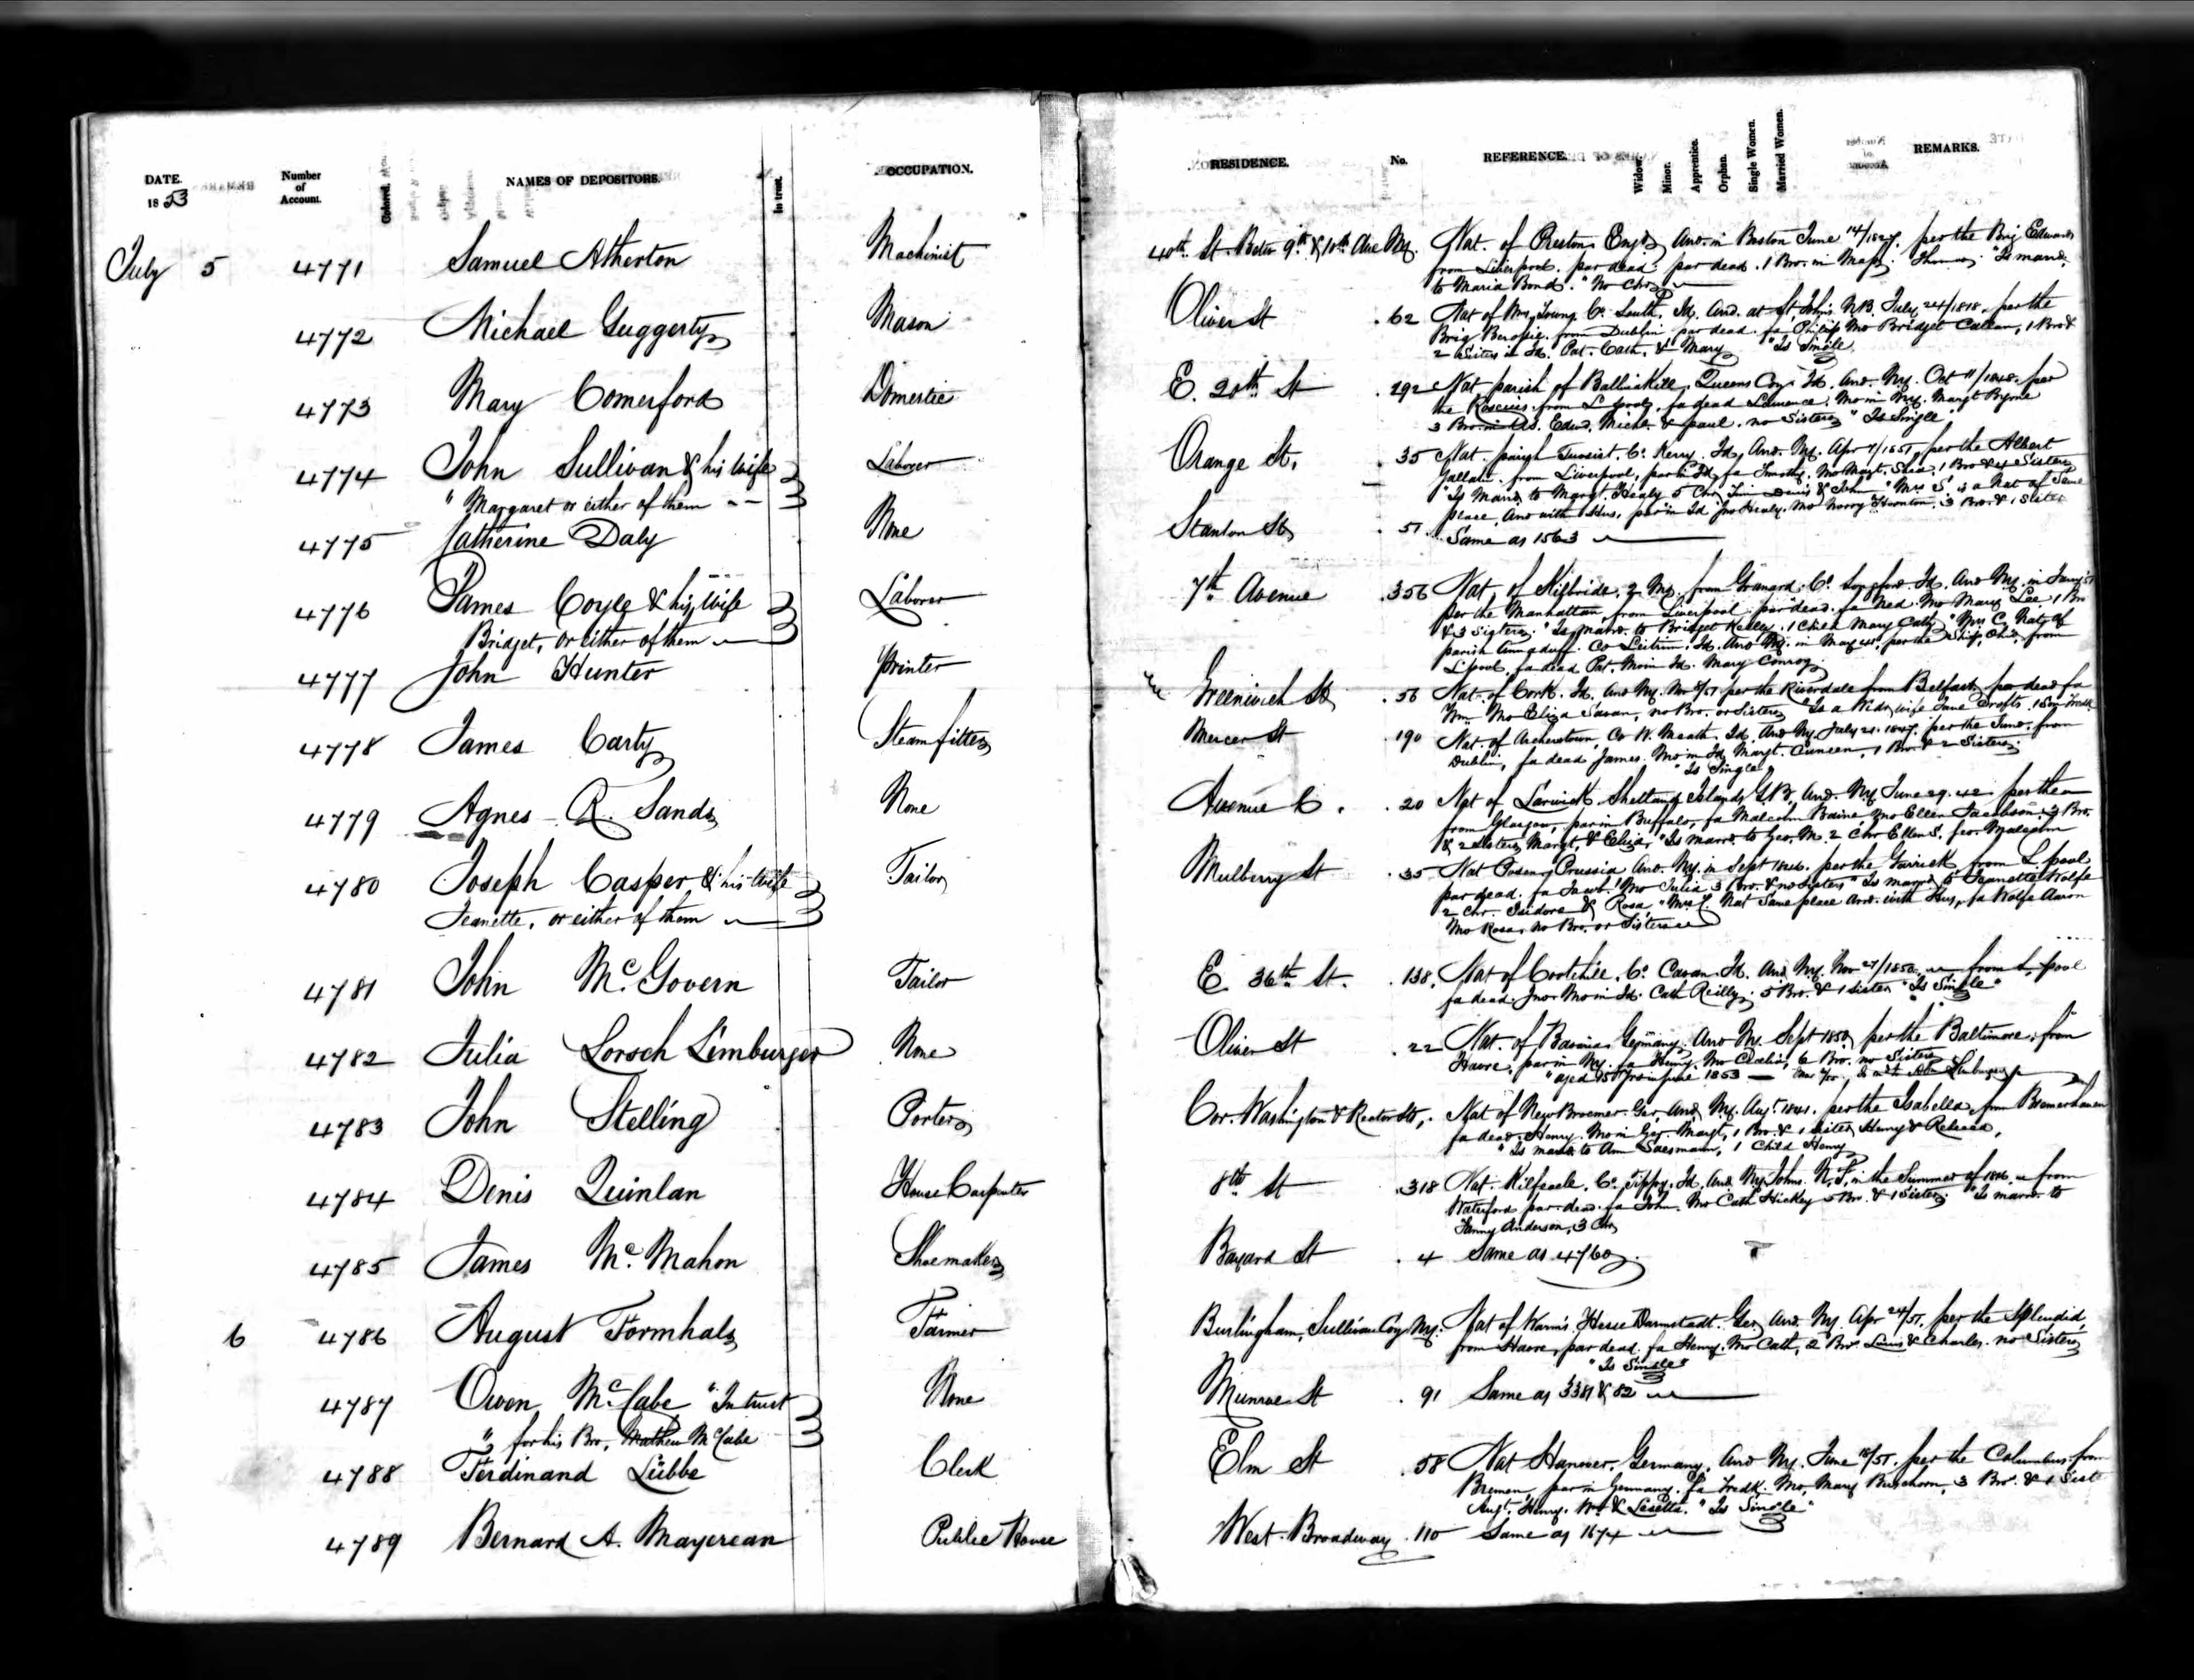 DATE. Number of Account. Colored. NAMES OF DEPOSITORS. In trust. OCCUPATION. RESIDENCE. No. REFERENCE. Widow. Minor. Apprentice. Orphan. Single Women. Married Women. REMARKS.
1853
July 5 4771 Samuel Atherton Machinist 40th St. Betw 9th & 10th Ave Ny. Nat. of Preston Engd Arr. in Boston June 14/1827. per the Brig Edward
from Liverpool. par dead. par dead. 1 Bro. in Mass. Thomas. "Is marrd.
to Maria Bond. "No Chn
4772 Michael Guggerty Mason Oliver St 62 Nat of Co. Louth, Id. Arr. at St. Johns N.B. July 24/1818. per the
Brig from Dublin par dead. fa Philip Mo Bridget Callan, 1 Bro &
2 Sisters in Id. Pat. Cath. & Mary "Is Single
4773 Mary Comerford Domestic E. 20th St 292 Nat parish of Ballinakill, Queens Coy. Id. Arr. Ny. Oct 11/1848. per
the Roscius from L pool, fa dead Lawrence. Mo in Ny. Margt Byrne
3 Bro. in US. Edwd, Michl. & paul. no Sisters "Is Single"
4774 John Sullivan & his Wife Laborer Orange St. 35 Nat. parish Tuosist. Co. Kerry. Id, Arr. Ny. Apr 7/1851, per the Albert
Gallatin from Liverpool, par in Id, fa Timothy. Mo Margt. Shea, 1 Bro & 4 Sisters
"Margaret or either of them "Is Marrd to Margt. Healy 5 Chn Tim Denis & John "Mrs S. is a Nat of Same
place, Arr with Hus, par in Id Jno Healy. Mo Norry 3 Bro. & 1 Sister
4775 Catherine Daly None Stanton St 51 Same as 1563
4776 James Coyle & his Wife Laborer 7th Avenue 356 Nat, of Kilbride, 2 Ms, from Granard. Co. Longford Id. Arr Ny. in Jany
per the Manhattan, from Liverpool par dead. fa Ned. Mo Mary Lee. 1 Bro
Bridget, or either of them & 3 Sisters. "Is Marrd. to Bridget Kelly. 1 Child Mary Cath "Mrs C. Nat of
parish Co Leitrim. Id. Arr Ny. in May per the Ship, Ohio, from
L'pool, fa dead Pat. Mo in Id. Mary Conroy
4777 John Hunter Printer Greenwich St 56 Nat. of Cork. Id. Arr Ny. Nov /51 per the Riverdale from Belfast, par dead fa
Wm Mo Eliza no Bro. or Sisters "Is a Widr, wife Jane 1 Son
4778 James Carty Steamfitter Mercer St 190 Nat. of Archerstown, Co W. Meath. Id. Arr Ny July 21. 1847, per the Juno. from
Dublin, fa dead James. Mo in Id, Margt. 1 Bro. & 2 Sisters.
"Is Single"
4779 Agnes R. Sands None Avenue C. 20 Nat of Larwick Shetland Islands G.B. Arr. Ny June 29. 42. per the
from Glasgow, par in Buffalo, fa Malcolm Mo Ellen Jacobson. 3 Bro.
& 2 Sisters, Margt, & Eliza, "Is marrd. to Geo. M. 2 Chn Ellen S. Geo. Malcolm
4780 Joseph Casper & his Wife Tailor Mulberry St 35 Nat Posen, Prussia Arr. Ny. in Sept 1846. per the Garrick from L. pool
par dead. fa Jacob. Mo Julia 3 Bro. & no Sisters "Is marrd to Jeanette Wolfe
Jeanette, or either of them 2 Chn. Isidore & Rosa "Mrs C. Nat Same place Arr. with Hus, fa Wolfe Aaron
Mo Rosa, no Bro. or Sisters
4781 John McGovern Tailor E. 36th St. 138. Nat of Cootehill. Co. Cavan. Id. Arr Ny. Nov 27/1850 from L. pool
fa dead. Jno. Mo in Id. Cath Reilly. 5 Bro. & 1 Sister "Is Single"
4782 Julia Lorsch Limburger None Oliver St 22 Nat. of Bavaria Germany. Arr Ny. Sept 1850 per the Baltimore, from
Havre, par in Ny. fa Henry, Mo 6 Bro. no Sisters
"aged 15 Yrs in June 1853
4783 John Stelling Porter Cor. Washington & Rector Sts, Nat of New Ger. Arr Ny. Augt. 1841. per the Isabella from Bremerhaven
fa dead. Henry. Mo in Ger. Margt, 1 Bro. & 1 Sister Henry & Rebecca,
"Is marrd to Ann 1 Child Henry
4784 Denis Quinlan House Carpenter 8th St 318 Nat. Co. Tippy. Id. Arr Ny Johns N.F. in the Summer of from
Waterford par dead. fa John. Mo Cath Hickey 5 Bro. & 1 Sister. "Is marrd. to
Fanny Anderson, 3 Chn
4785 James McMahon Shoemaker Bayard St 4 Same as 4760
6 4786 August Formhals Farmer Burlingham, Sullivan Coy. Ny. Nat of Hesse Darmstadt. Ger Arr. Ny. Apr 24/51. per the Splendid,
from Havre, par dead. fa Henry, Mo Cath, 2 Bro Louis & Charles. no Sisters
"Is Single"
4787 Owen McCabe "In trust None Munroe St 91 Same as 3381 & 82
" for his Bro, Mathew McCabe
4788 Ferdinand Lübbe Clerk Elm St 58 Nat Hanover. Germany. Arr Ny. June 18/51. per the Columbus from
Bremen, par in Germany. fa Fredk. Mo, Mary 3 Bro. & 1 Sist
Augt. Henry. Wm & Lisetta. "Is Single"
4789 Bernard A. Mayerean Public House West Broadway 110 Same as 1674